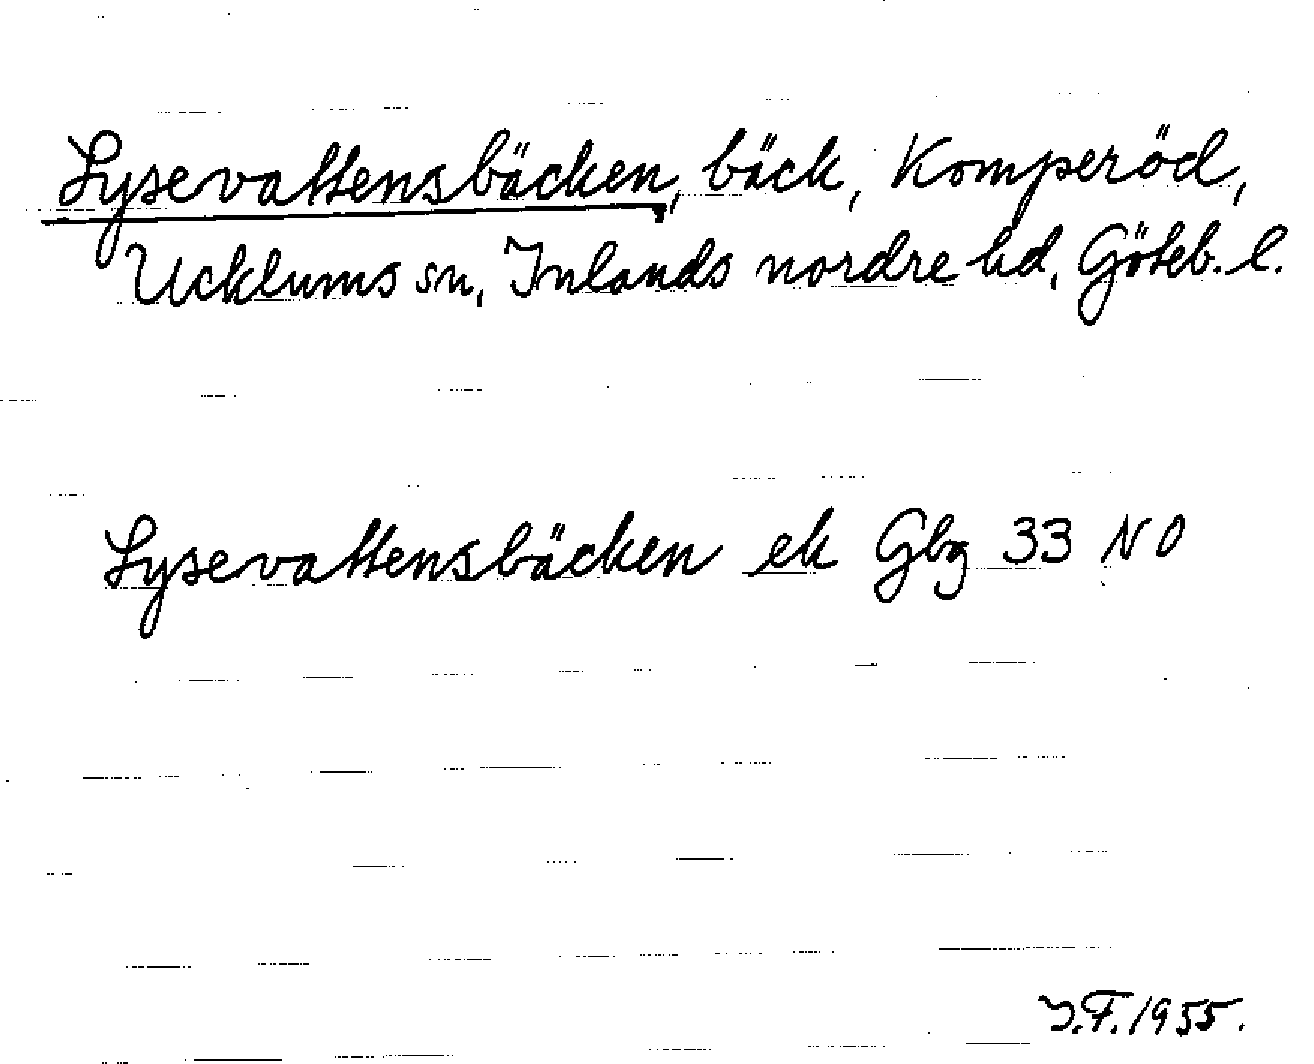 Lysevattensbäcken, bäck, Komperöd,
Ucklums sn, Inlands nordre hd, Göteb. l.
Lysevattensbäcken ek Gbg 33 NO
I.F. 1955.